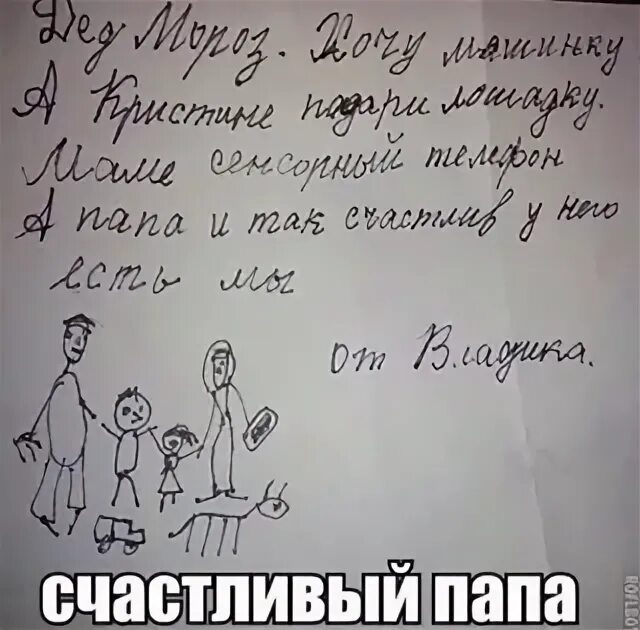 Дед Мороз. Хочу машинку
А Кристине падари лошадку.
Маме сенсорный телефон
А папа и так счастлив у него
есть мы
от Владика.
СЧАСТЛИВЫЙ ПАПА